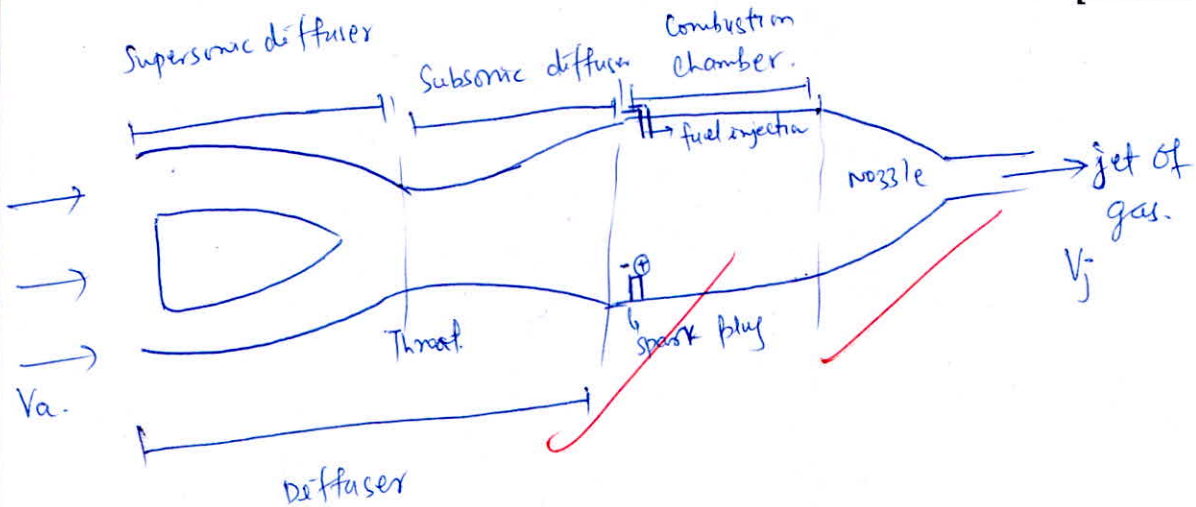 Supersonic diffuser
Subsonic diffuser
Combustion
chamber.
fuel injection
Nozzle
jet of
gas.
Vj
Throat.
spark plug
Va.
Diffuser